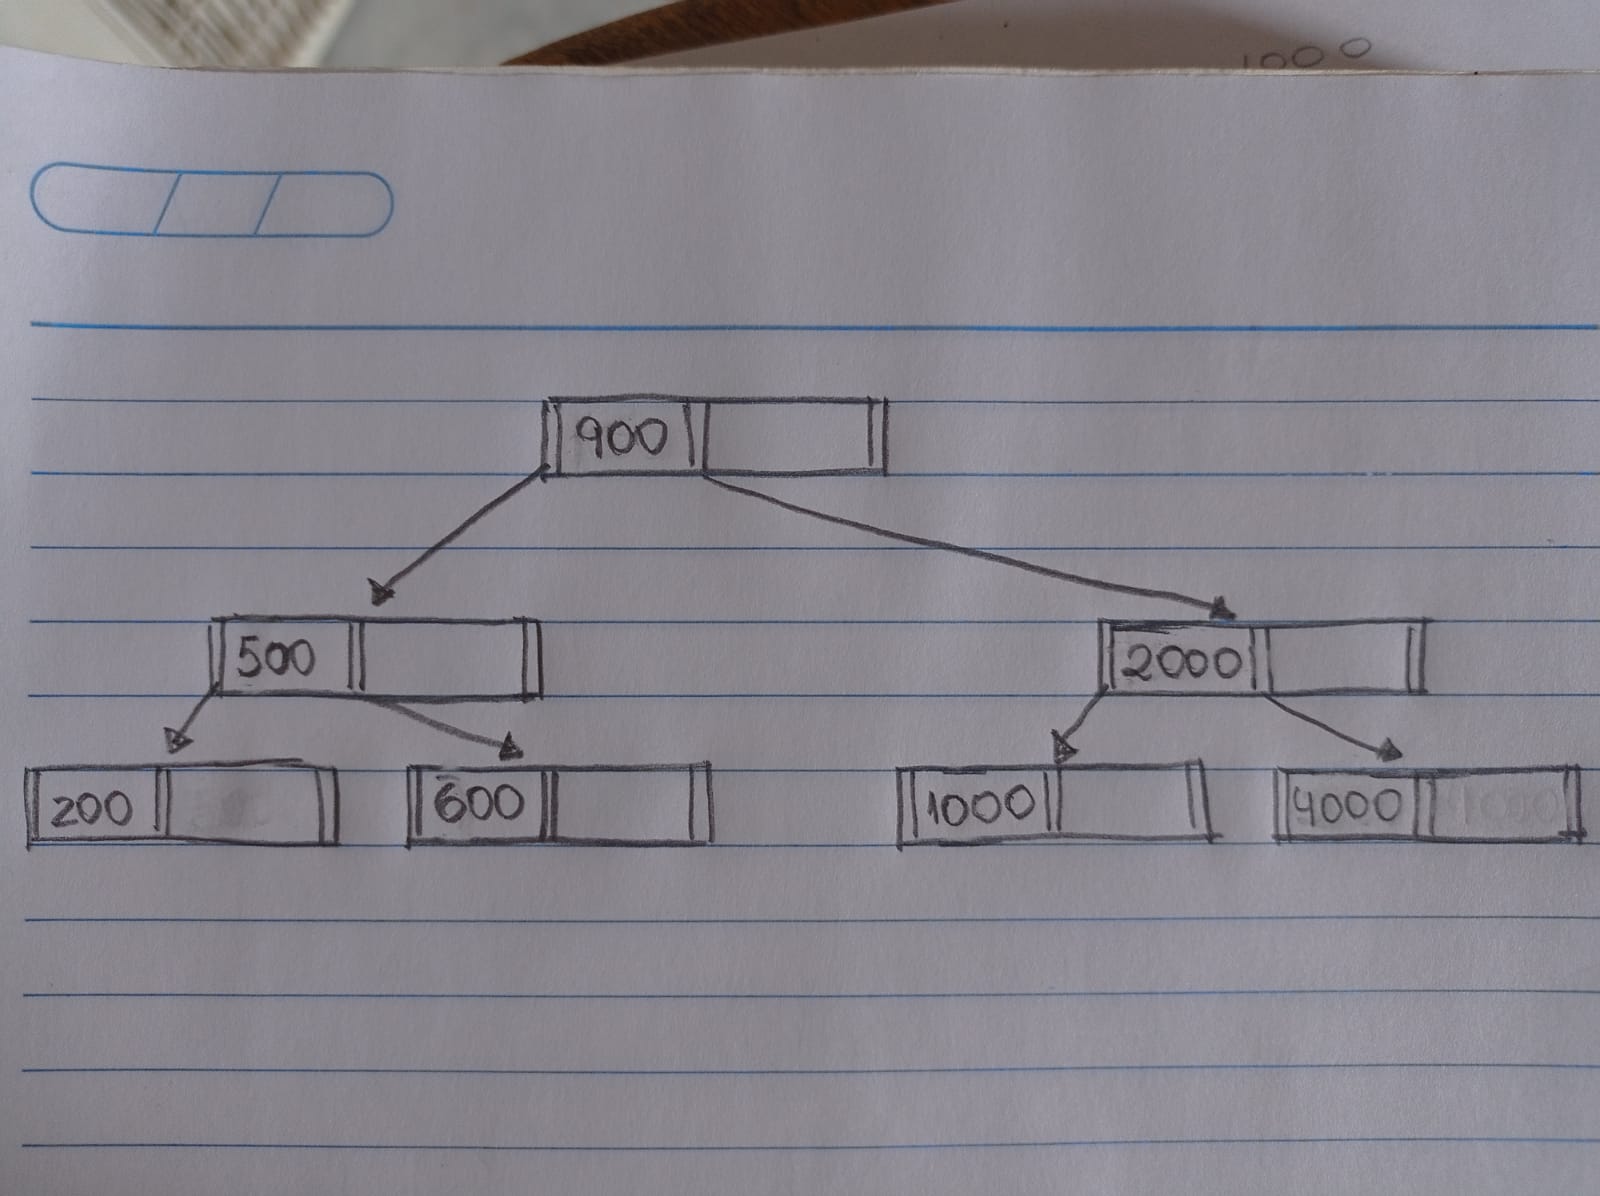 1000
900
500 2000
200 600 1000 4000